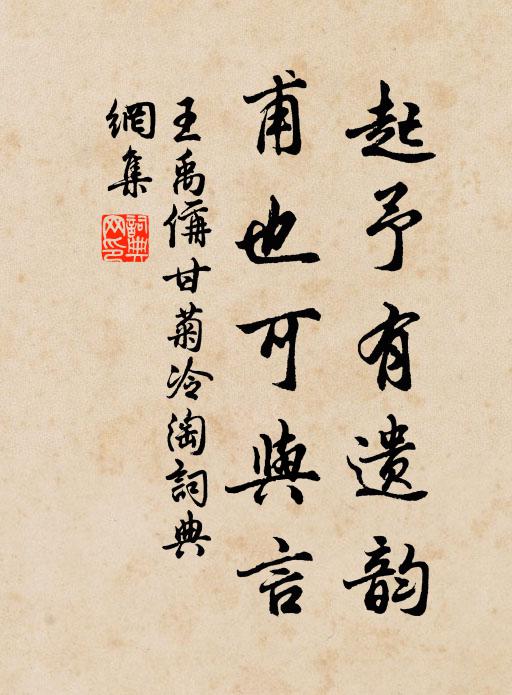 起予有遗韵
甫也可與言
王禹偁甘菊冷淘詞典
網集
詞典
网印